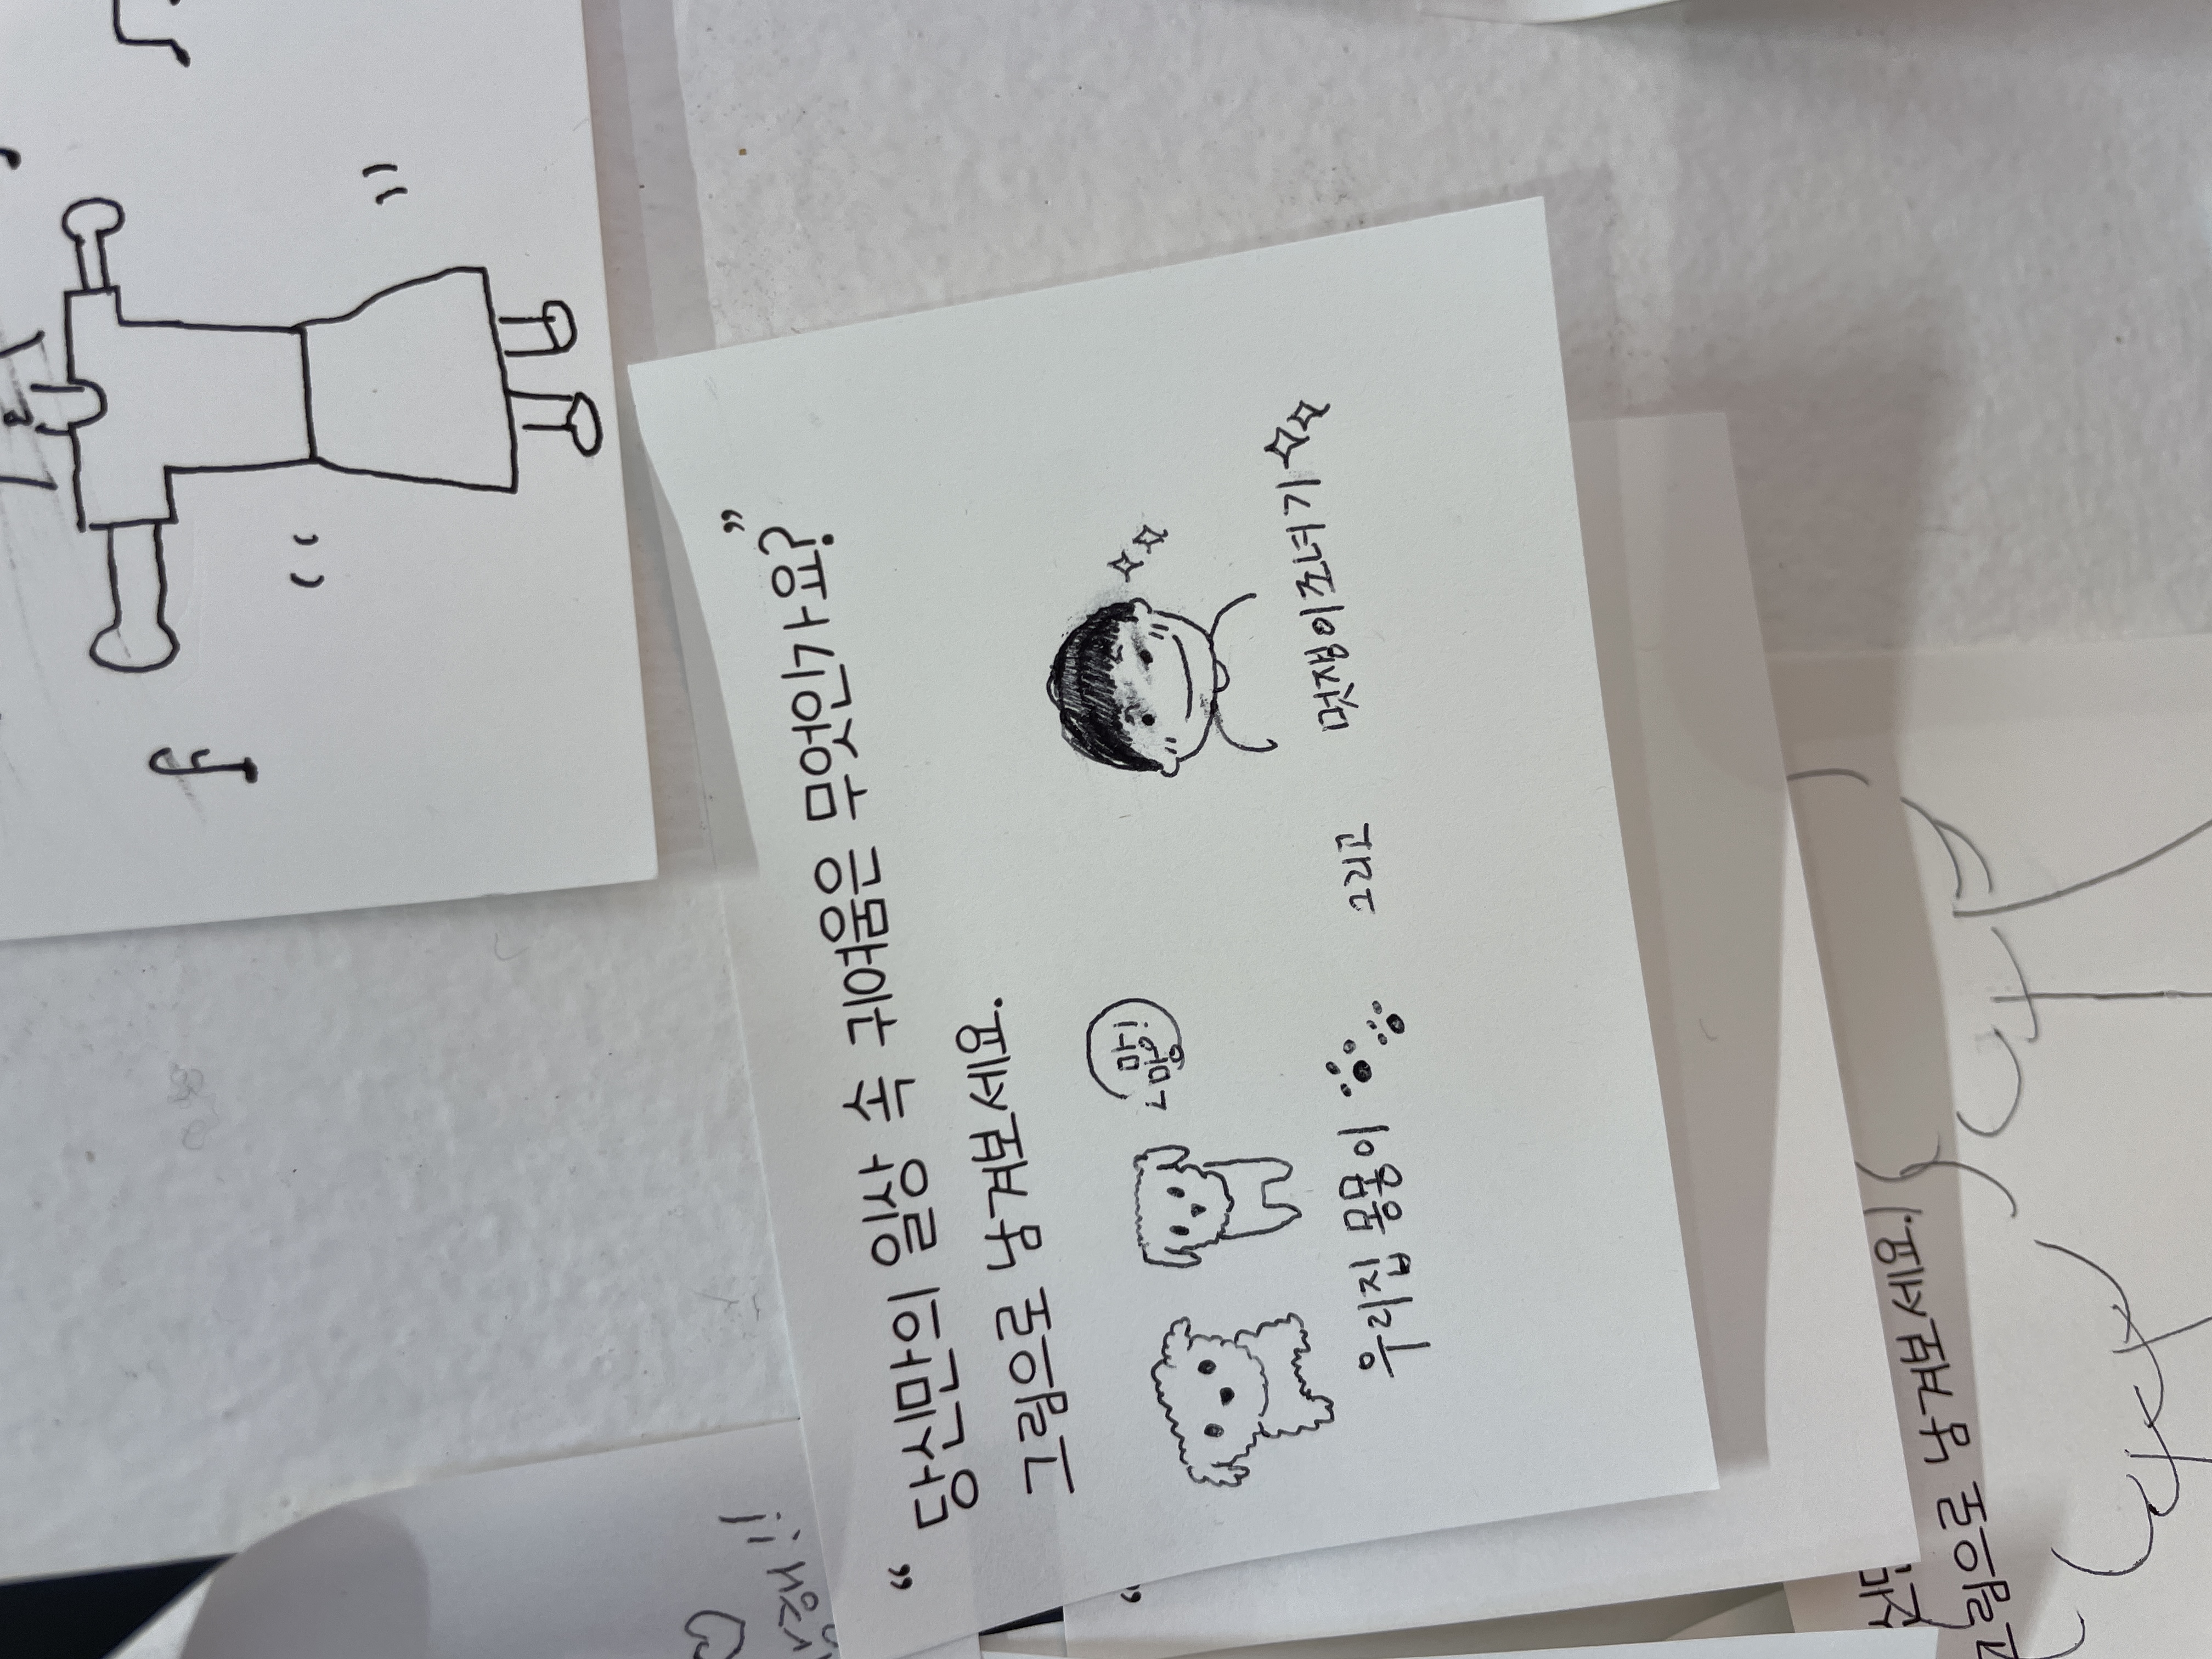 “ 당신만의 일상 속 귀여움은 무엇인가요? ”
그림으로 남겨보세요.
망!
망
우리집 몽몽이 그리고 멋쟁이조녀기
그림으로 남겨보세요.